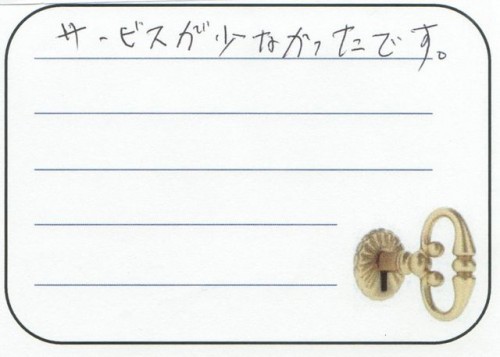 サービスが少なかったです。